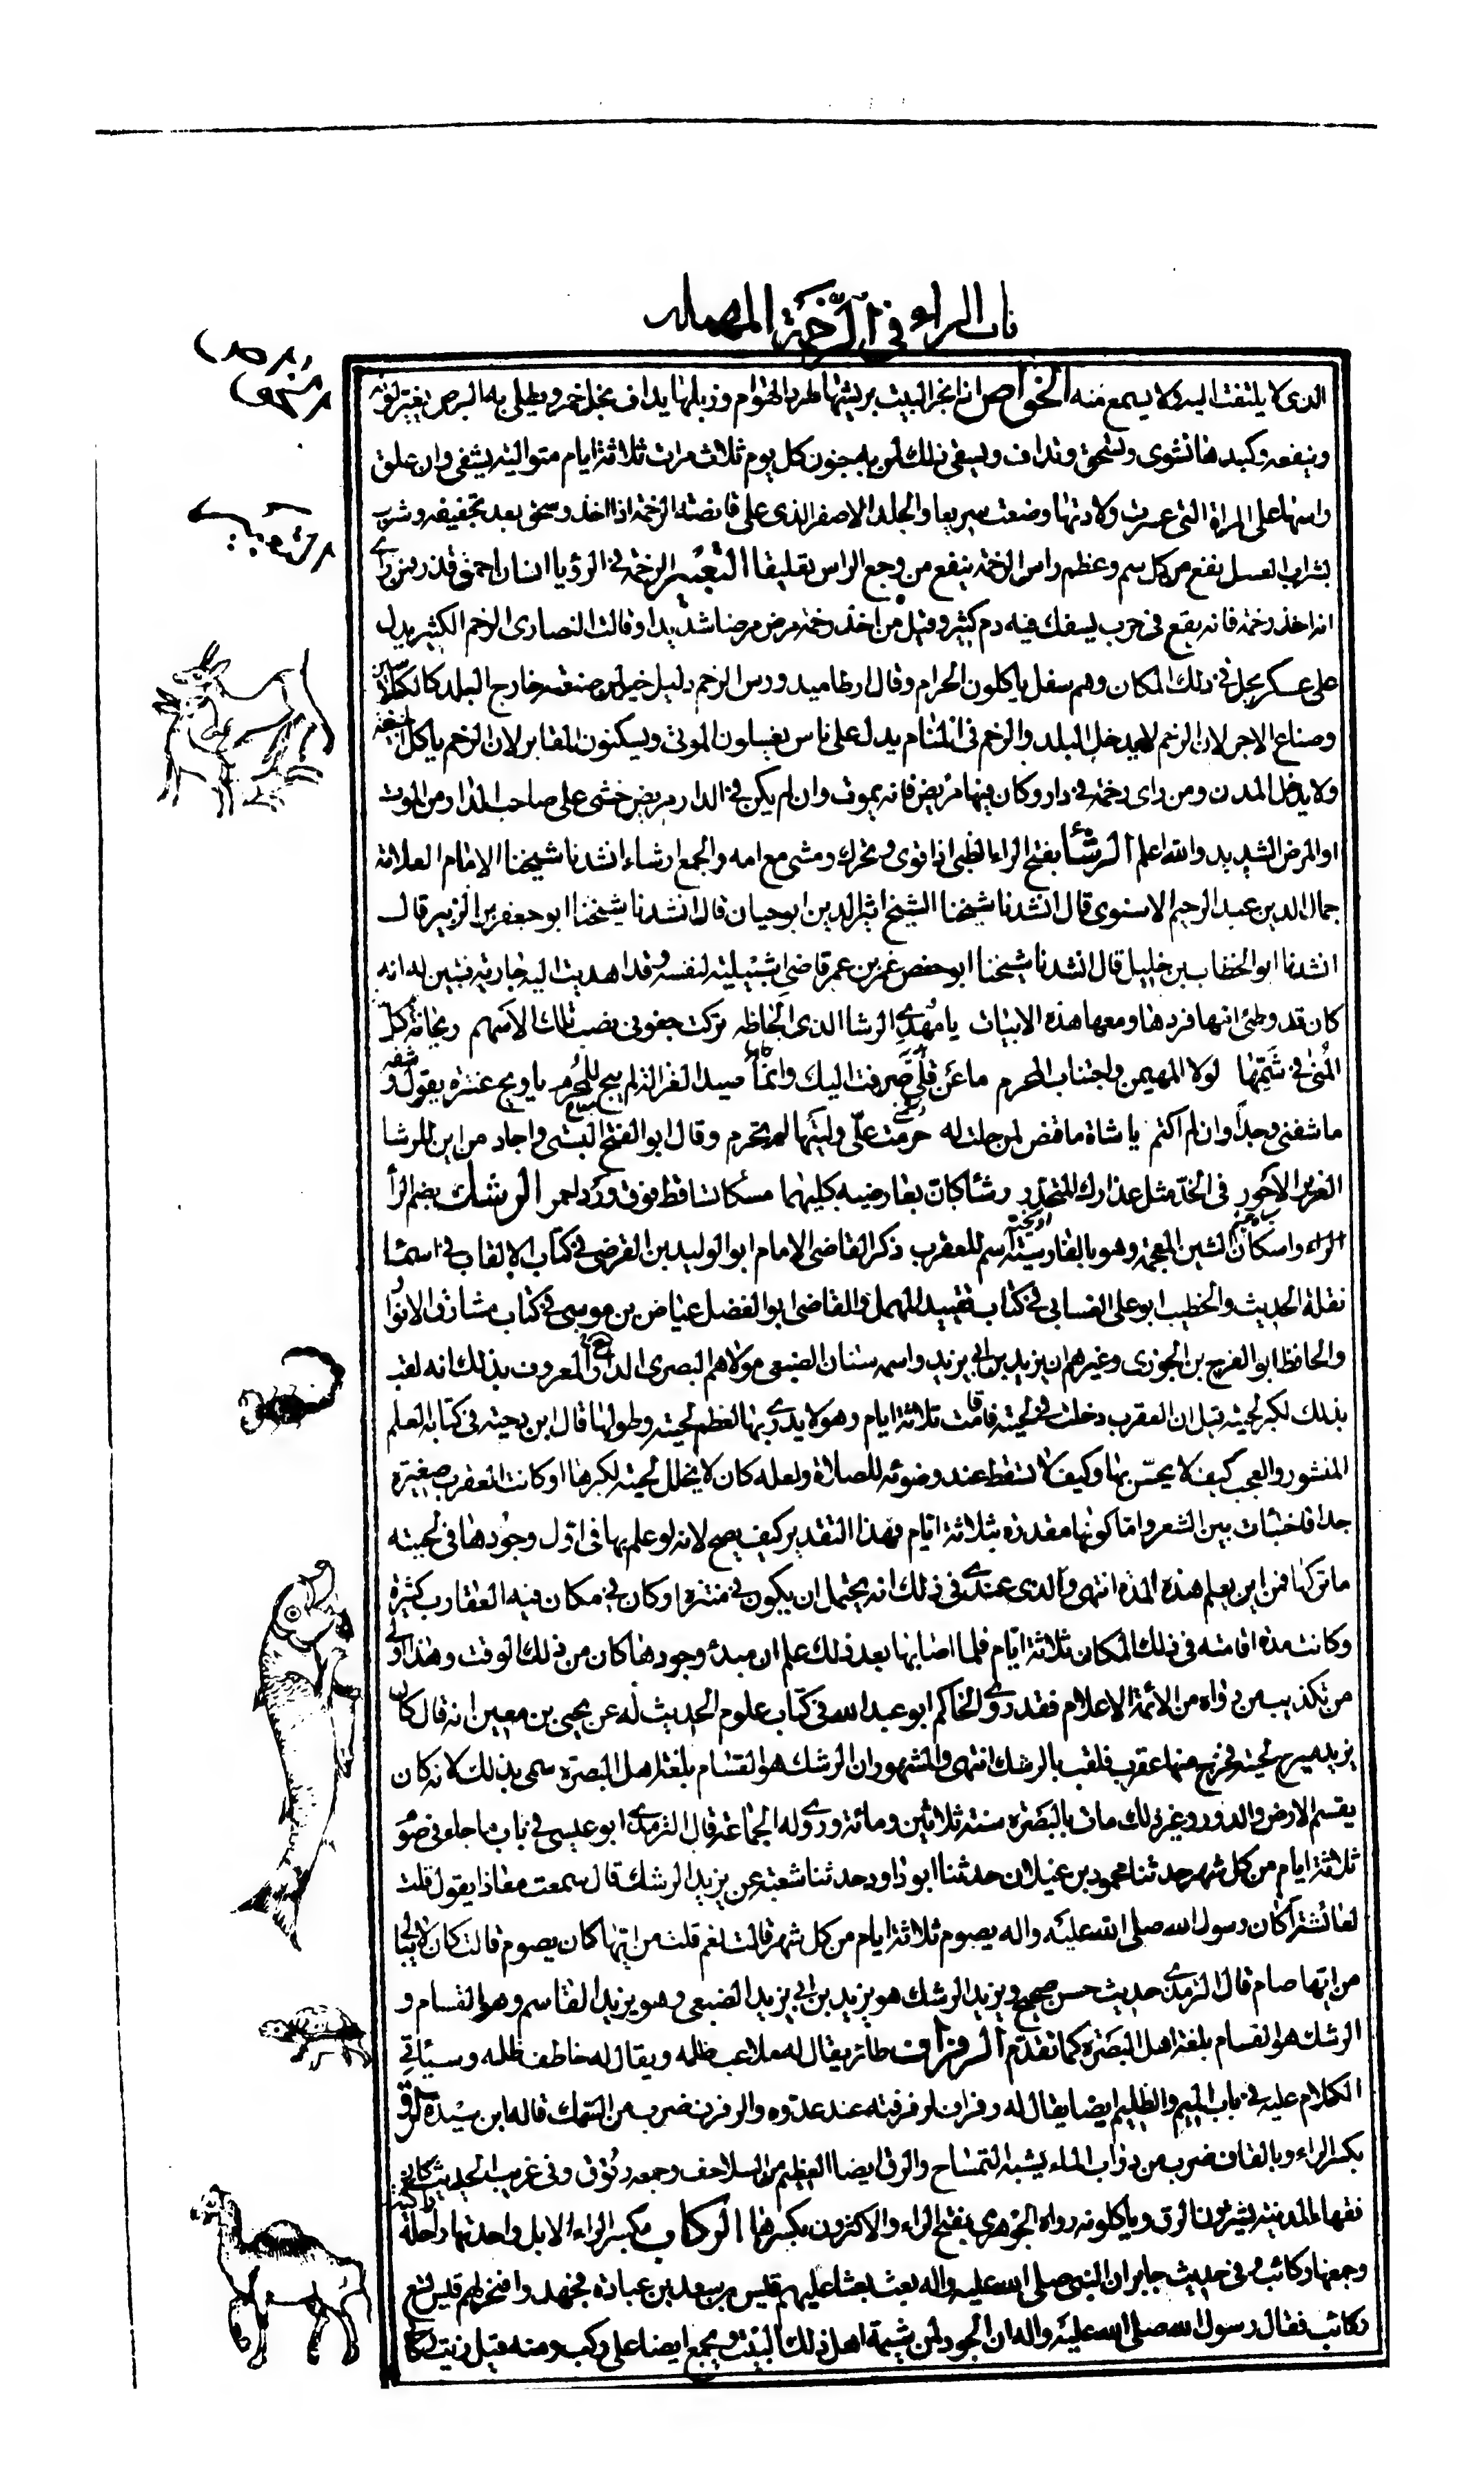 باب الراء في الرخمة المهملة
برص
الذي لا يلتفت اليه ولا يسمع منه الخواص اذا بخر البيت بريشها طرد الهوام وزبلها يداف بخل خمر ويطلى به البرص يغير لونه
وينفعه وكبدها تشوى وتسحق وتداف ويسقى ذلك لمن به جنون كل يوم ثلاث مرات ثلاثة ايام متوالية يشفى وان علق
راسها على المراة التي عسرت ولادتها وضعت سريعا والجلد الاصفر الذي على قانصة الرخمة اذا اخذ وسحق بعد تجفيفه وشرب
بشراب العسل نفع من كل سم وعظم راس الرخمة ينفع من وجع الراس تعليقا التعبير الرخمة في الرؤيا انسان احمق قذر ومن راى
انه اخذ رخمة فانه يقع في حرب يسفك فيه دم كثير وقيل من اخذ رخمة مرض مرضا شديدا وقالت النصارى الرخم الكثير يدل
على عسكر يحل في ذلك المكان وهم سفل ياكلون الحرام وقال ارطاميدورس الرخم دليل خير لمن صنعته خارج البلد كالكلاسين
وصناع الاجر لان الرخم لا يدخل البلد والرخم في المنام يدل على ناس يغسلون الموتى ويسكنون المقابر لان الرخم ياكل الجيفة
ولا يدخل المدن ومن راى رخمة في دار وكان فيها مريض فانه يموت وان لم يكن في الدار مريض خشي على صاحب الدار من الموت
او المرض الشديد والله اعلم الرشأ بفتح الراء الظبي اذا قوي وتحرك ومشى مع امه والجمع ارشاء انشدنا شيخنا الامام العلامة
جمال الدين عبد الرحيم الاسنوي قال انشدنا شيخنا الشيخ اثير الدين ابو حيان قال انشدنا شيخنا ابو جعفر بن الزبير قال
انشدنا ابو الخطاب بن خليل قال انشدنا شيخنا ابو حفص عمر بن عمر قاضي اشبيلية لنفسه وقد اهديت اليه جارية فتبين له انه
كان قد وطئ امها فردها ومعها هذه الابيات يا مهدي الرشا الذي الحاظه تركت جفوني نصب تلك الاسهم ريحانة كل
المنى في شمها لولا المهيمن واجتناب المحرم ما عن قلى صرفت اليك وانما صيد الغزالة لم يبح للمحرم يا ويح عنترة يقول وشفه
ما شفني وجدا وان لم اكتم يا شاة ما قنص لمن حلت له حرمت علي وليتها لم تحرم وقال ابو الفتح البستي واجاد من اين للرشا
الغرير الاحور في الخد مثل عذارك المتحدر رشأ كان بعارضيه كليهما مسكا تساقط فوق ورد احمر الرشك بضم الراء
الراء واسكان الشين المعجمة وهو بالفارسية اسم للعقرب ذكر القاضي الامام ابو الوليد بن الفرضي في كتاب الالقاب في اسماء
نقلة الحديث والخطيب ابو علي الغساني في كتاب تقييد المهمل والقاضي ابو الفضل عياض بن موسى في كتاب مشارق الانوار
والحافظ ابو الفرج بن الجوزي وغيرهم ان يزيد بن ابي يزيد واسمه سنان الضبعي مولاهم البصري الذارع المعروف بذلك انه لقب
بذلك لكبر لحيته قيل ان العقرب دخلت في لحيته فاقامت ثلاثة ايام وهو لا يدري بها لعظم لحيته وطولها قال ابن دحية في كتابه العلم
المنشور والعجب كيف لا يحس بها وكيف لا تسقط عند وضوئه للصلاة ولعله كان لا يخلل لحيته لكبرها او كانت العقرب صغيرة
جدا فاختبأت بين الشعر واما كونها مقدرة بثلاثة ايام فهذا التقدير كيف يصح لانه لو علم بها في اول وجودها في لحيته
ما تركها فمن اين يعلم هذه المدة انتهى والذي عندي في ذلك انه يحتمل ان يكون في منتزه او كان في مكان فيه العقارب كثيرة
وكانت مدة اقامته في ذلك المكان ثلاثة ايام فلما اصابها بعد ذلك علم ان مبدء وجودها كان من ذلك الوقت وهذا اولى
من تكذيب من رواه من الائمة الاعلام فقد روى الحاكم ابو عبد الله في كتاب علوم الحديث له عن يحيى بن معين انه قال كان
يزيد يسرح لحيته فخرج منها عقرب فلقب بالرشك انتهى والمشهور ان الرشك هو القسام بلغة اهل البصرة سمي بذلك لانه كان
يقسم الارض والدور وغير ذلك مات بالبصرة سنة ثلاثين ومائة وروى له الجماعة قال الترمذي ابو عيسى في باب ما جاء في صوم
ثلاثة ايام من كل شهر حدثنا محمود بن غيلان حدثنا ابو داود حدثنا شعبة عن يزيد الرشك قال سمعت معاذا يقول قلت
لعائشة اكان رسول الله صلى الله عليه واله يصوم ثلاثة ايام من كل شهر قالت نعم قلت من ايها كان يصوم قالت كان لا يبالي
من ايها صام قال الترمذي حديث حسن صحيح ويزيد الرشك هو يزيد بن ابي يزيد الضبعي وهو يزيد القاسم وهو القسام و
الرشك هو القسام بلغة اهل البصرة كما تقدم الرفراف طائر يقال له ملاعب ظله ويقال له خاطف ظله وسياتي
الكلام عليه في باب الميم والظليم ايضا يقال له رفراف لرفرفته عند عدوه والرفرف ضرب من السمك قاله ابن سيده الرق
بكسر الراء وبالقاف ضرب من دواب الماء يشبه التمساح والرق ايضا العظيم من السلاحف وجمعه رقوق وفي غريب الحديث كان
فقهاء المدينة يشترون الرق وياكلونه رواه الجوهري بفتح الراء والاكثرون بكسرها الركاب بكسر الراء الابل واحدتها راحلة
وجمعها ركائب وفي حديث جابر ان النبي صلى الله عليه واله بعث بعثا عليهم قيس بن سعد بن عبادة فجهدوا فنحر لهم قيس تسع
ركائب فقال رسول الله صلى الله عليه واله ان الجود لمن شيمة اهل ذلك البيت ويجمع ايضا على ركب ومنه قيل زيت ركابي